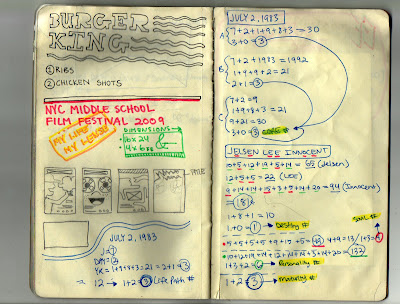 BURGER
KING
① RIBS
② CHICKEN SHOTS
NYC MIDDLE SCHOOL
FILM FESTIVAL 2009
MY LIFE
MY LENSE
DIMENSIONS
16 x 24
4 x 6
&
JULY 2, 1983
DM = 2
YR = 1+9+8+3 = 21 = 2+1 = 3
12 → 1+2 = 3 Life Path #
JULY 2, 1983
A 7+2+1+9+8+3 = 30
3+0 = 3
B 7+2+1983 = 1992
1+9+9+2 = 21
2+1 = 3
C 7+2 = 9
1+9+8+3 = 21
9+21 = 30
3+0 = 3 CORE #
JELSEN LEE INNOCENT
10+5+12+19+5+14 = 65 (Jelsen)
12+5+5 = 22 (LEE)
9+14+14+15+3+5+14+20 = 94 (Innocent)
181
1+8+1 = 10
1+0 = 1 Destiny #
SOUL #
5+5+5+5+9+15+5 = 49 4+9 = 13/1+3 = 4
10+12+19+14+12+14+14+3+14+20 = 132
1+3+2 = 6 Personality #
1+2 = 3 Maturity #